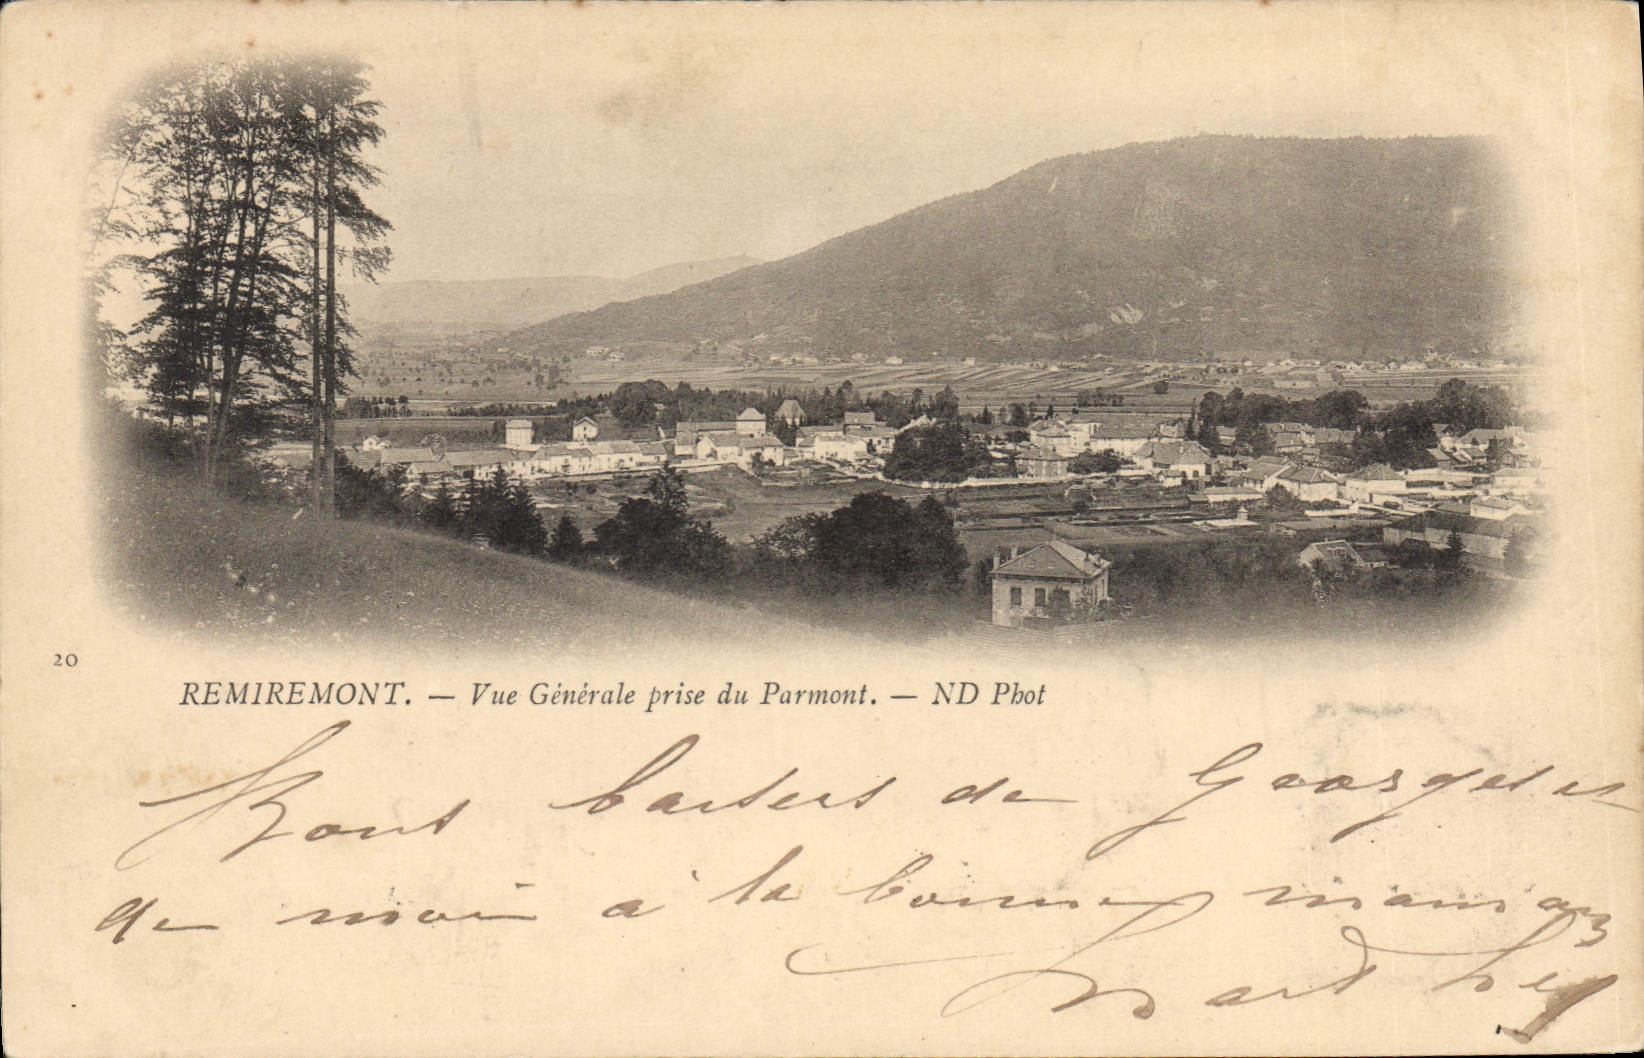 20
REMIREMONT. — Vue Générale prise du Parmont. — ND Phot
Bons baisers de Georges et
de moi à la bonne maman